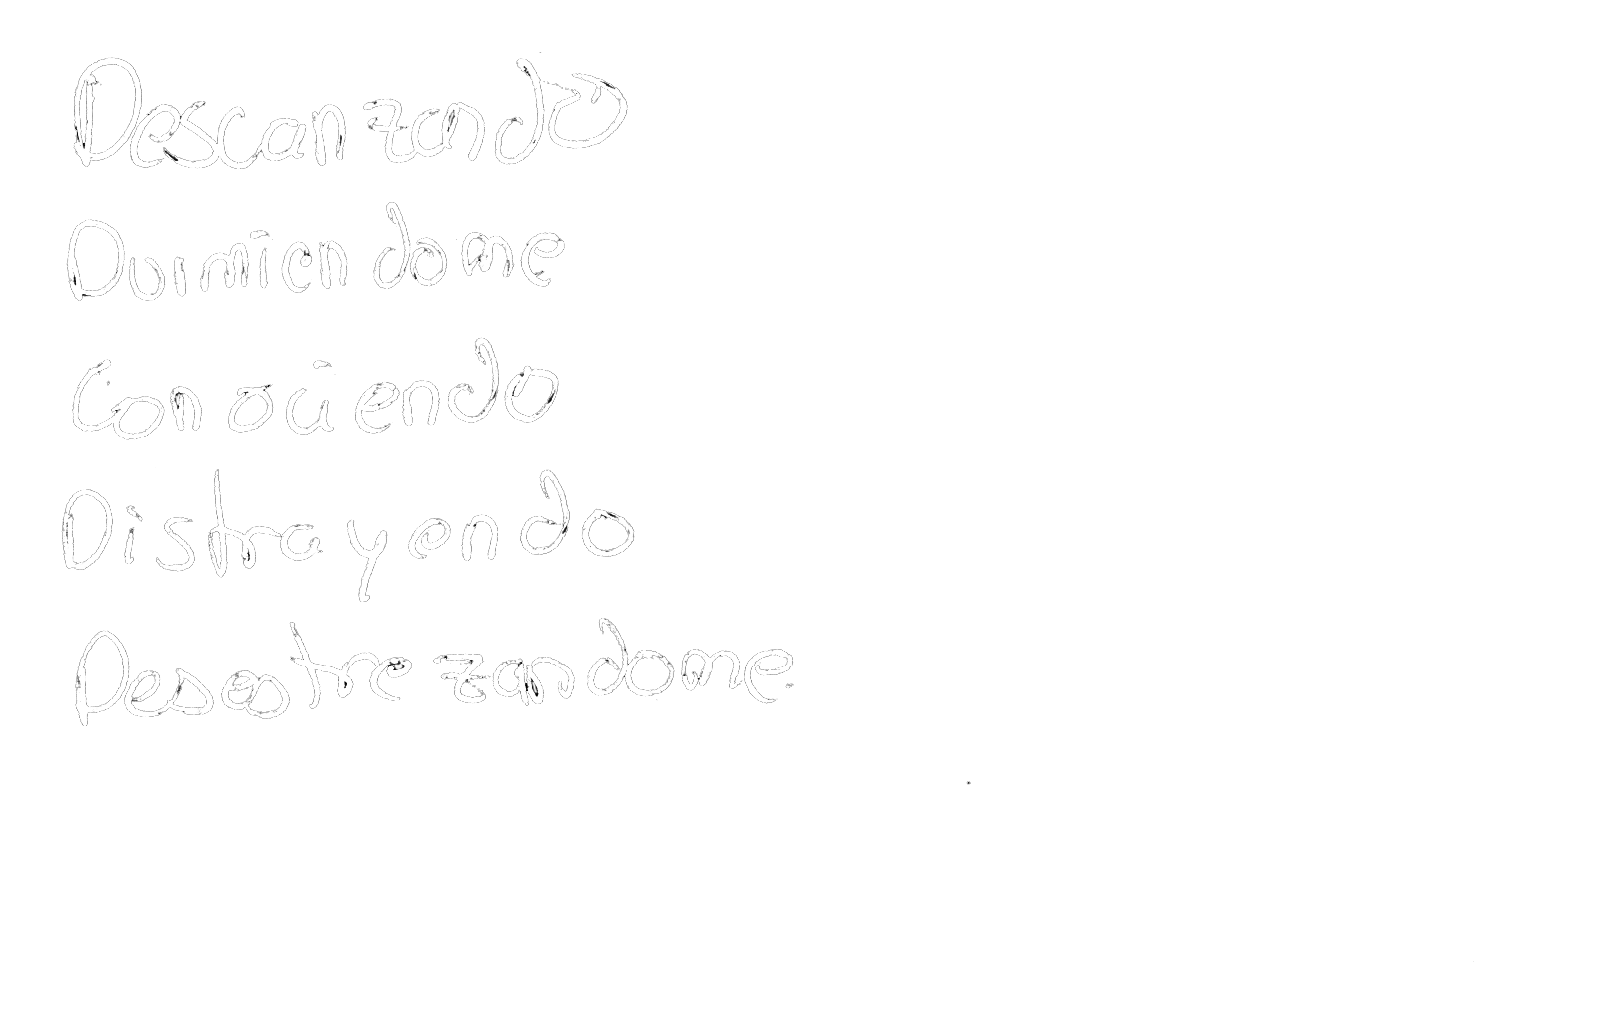 Descanzando
Durmiendome
Conociendo
Distrayendo
Desestrezandome.